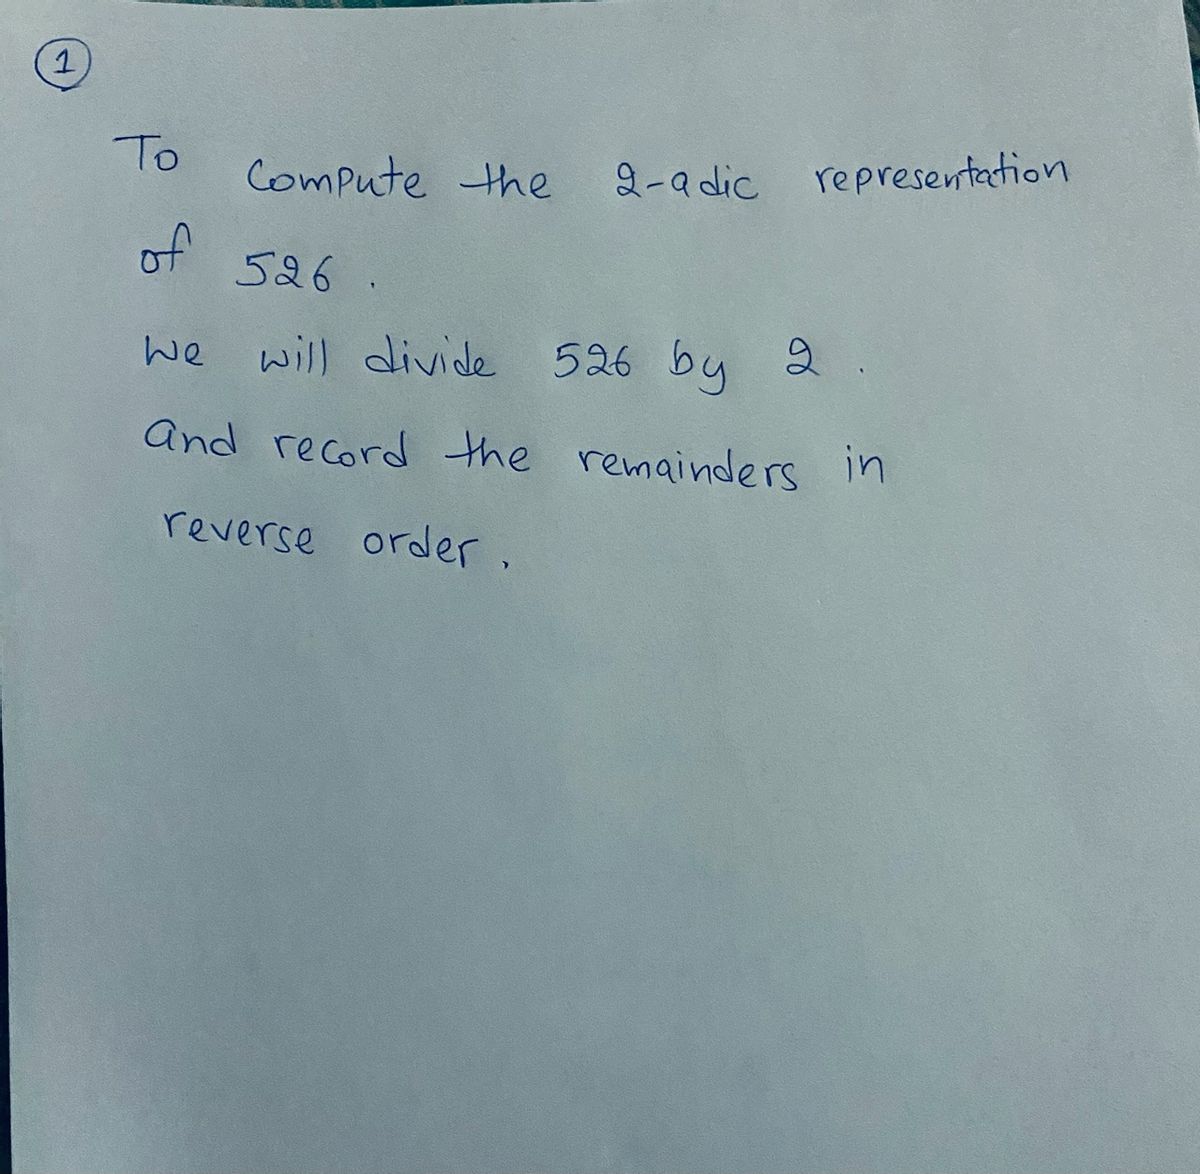 1
To Compute the 2-adic representation
of 526.
We will divide 526 by 2.
and record the remainders in
reverse order.